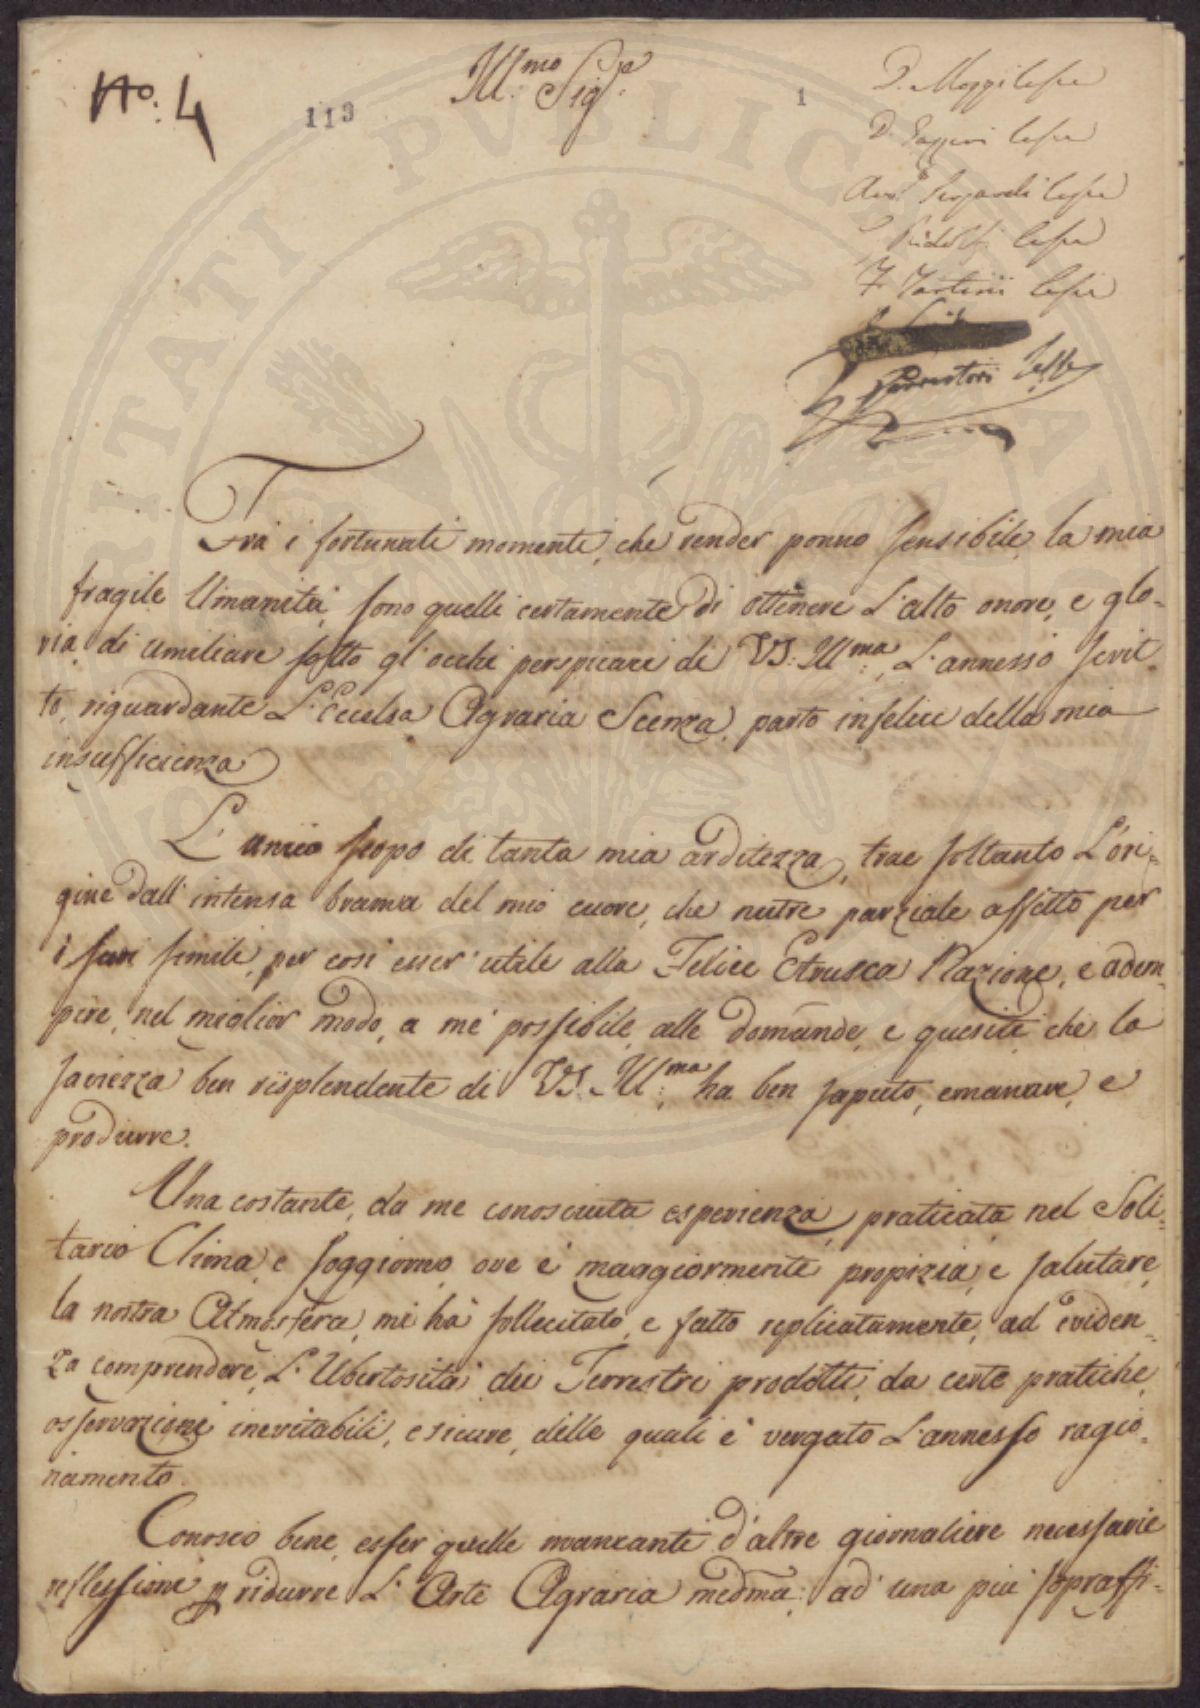 No: 4
113
Ill:mo Sig:r
1
D. Moggi lesse
D. Gazzeri lesse
lesse
Ridolfi lesse
F. Tartini lesse
lesse
Frà i fortunati momenti, che render ponno sensibile, la mia
fragile Umanità, sono quelli certamente di ottenere L'alto onore, e glo-
ria, di umiliare sotto gl'occhi perspicaci di VS: Ill:ma, L'annesso scrit-
to, riguardante L'Eccelsa Agraria Scenza, parto infelice della mia
insufficienza
L'unico scopo di tanta mia arditezza, trae soltanto L'ori-
gine dall'intensa brama del mio cuore, che nutre parziale affetto per
i suoi simili, per così esser' utile alla Felice Etrusca Nazione, e adem-
pire, nel miglior modo, a me possibile, alle domande, e quesiti che la
saviezza ben risplendente di VS. Ill:ma ha ben saputo, emanare, e
produrre.
Una costante, da me conosciuta esperienza, praticata nel Soli-
tario Clima, e soggiorno, ove è maggiormente propizia, e salutare,
la nostra Atmosfera, mi hà sollecitato, e fatto replicatamente, ad eviden-
za comprendere, L'Ubertosità dei Terrestri prodotti, da certe pratiche,
osservazioni inevitabili, e sicure, delle quali è vergato L'annesso ragio-
namento.
Conosco bene, esser quelle mancanti d'altre giornaliere necessarie
reflessioni p ridurre L'Arte Agraria medma: ad una più sopraffi-